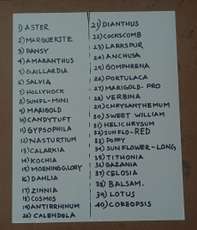 1) ASTER
2) MARGUERITE
3) PANSY
4) AMARANTHUS
5) GAILLARDIA
6) SALVIA
7) HOLLYHOCK
8) SUNFL-MINI
9) MARIGOLD
10) CANDYTUFT
11) GYPSOPHILA
12) NASTURTIUM
13) CALARKIA
14) KOCHIA
15) MORNINGGLORY
16) DAHLIA
17) ZINNIA
18) COSMOS
19) ANTIRRHINUM
20) CALENDULA
21) DIANTHUS
22) COCKSCOMB
23) LARKSPUR
24) ANCHUSA
25) GOMPHRENA
26) PORTULACA
27) MARIGOLD- PRO
28) VERBINA
29) CHRYSANTHEMUM
30) SWEET WILLIAM
31) HELICHRYSUM
32) SUNFLO-RED
33) POPPY
34) SUNFLOWER-LONG
35) TITHONIA
36) GAZANIA
37) CELOSIA
38) BALSAM.
39) LOTUS
40) COREOPSIS